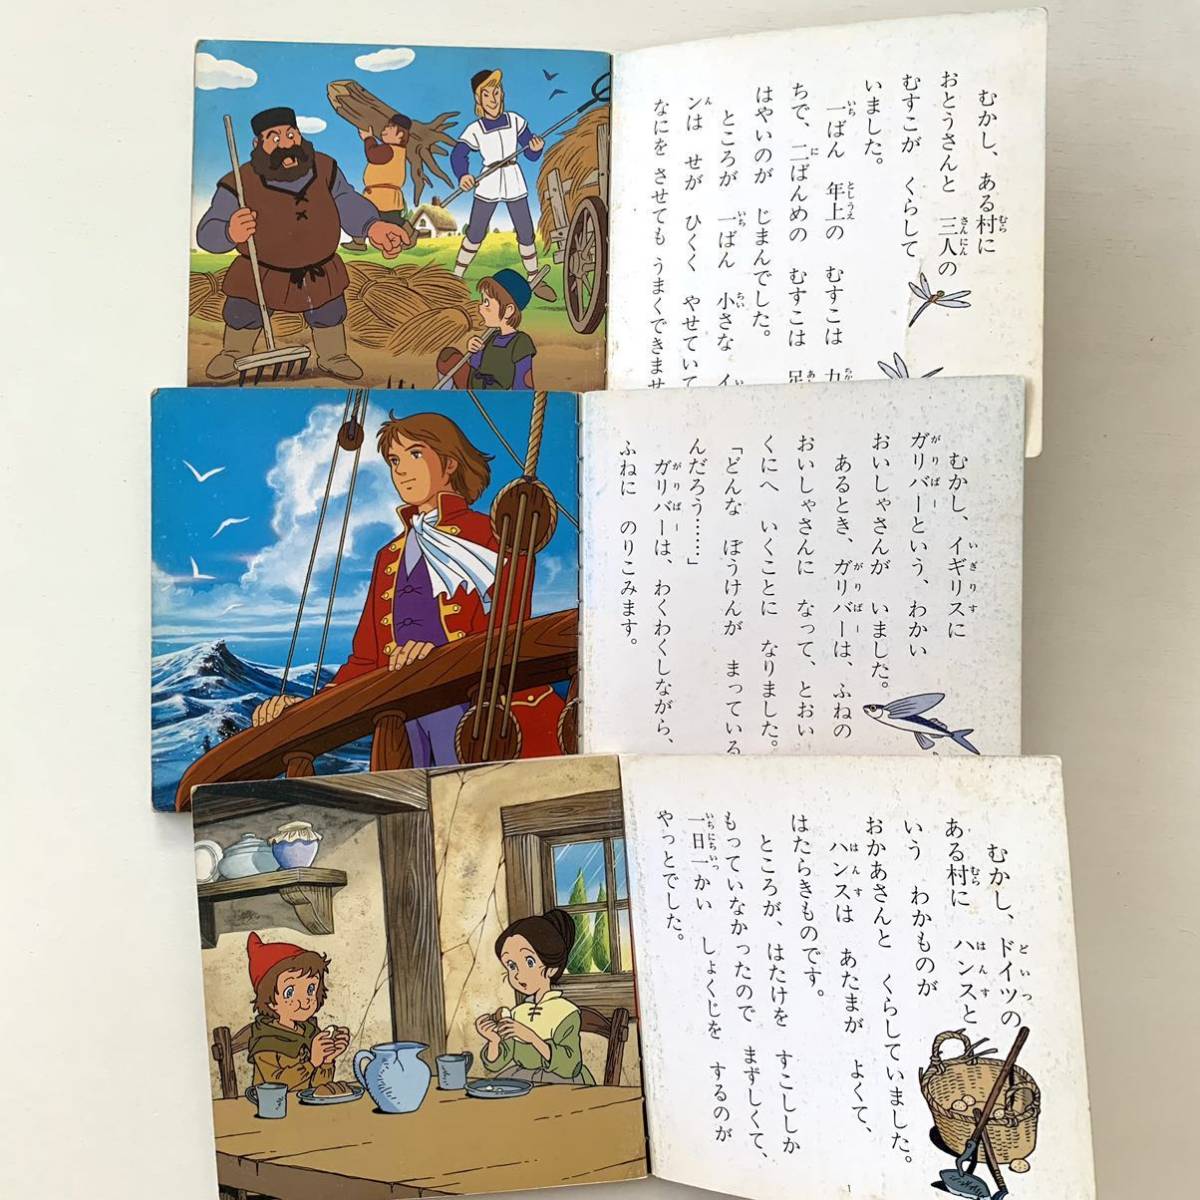 むかし、ある村に
おとうさんと 三人の
むすこが くらして
いました。
一ばん 年上の むすこは 力
ちで、二ばんめの むすこは 足
はやいのが じまんでした。
ところが 一ばん 小さな イ
ンは せが ひくく やせていて
なにを させても うまくできませ
むかし、イギリスに
ガリバーという、わかい
おいしゃさんが いました。
あるとき、ガリバーは、ふねの
おいしゃさんに なって、とおい
くにへ いくことに なりました。
「どんな ぼうけんが まっている
んだろう……」
ガリバーは、わくわくしながら、
ふねに のりこみます。
むかし、ドイツの
ある村に ハンスと
いう わかものが
おかあさんと くらしていました。
ハンスは あたまが よくて、
はたらきものです。
ところが、はたけを すこししか
もっていなかったので まずしくて、
一日一かい しょくじを するのが
やっとでした。